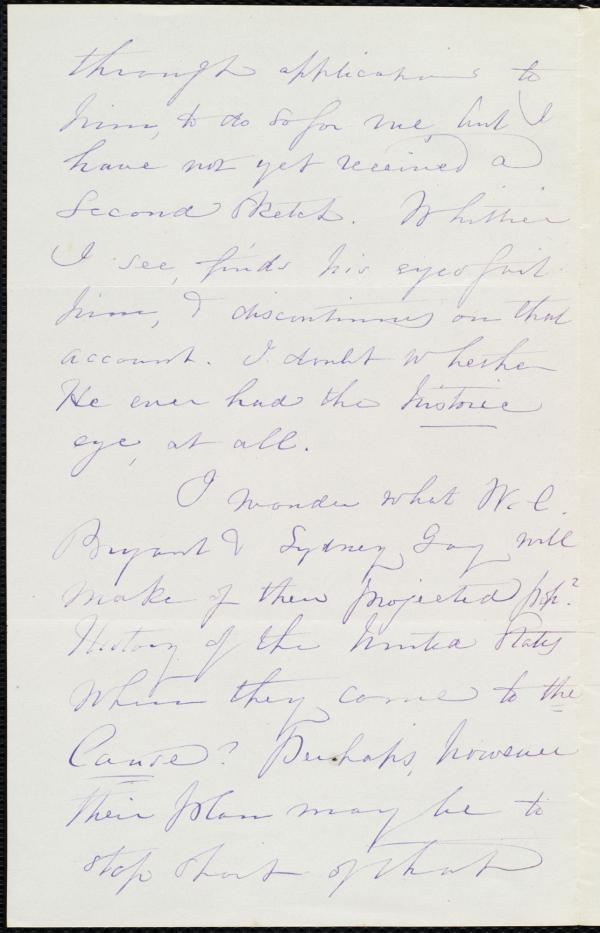 through applications to
him, to do so for me, but I
have not yet received a
second sketch. Whittier
I see, finds his eyes fail
him, & discontinues on that
account. I doubt whether
He ever had the historic
eye, at all.
I wonder what W. C.
Bryant & Sydney Gay will
make of their projected pop?
History of the United States
when they come to the
Cause? Perhaps, however
their plan may be to
stop short of that